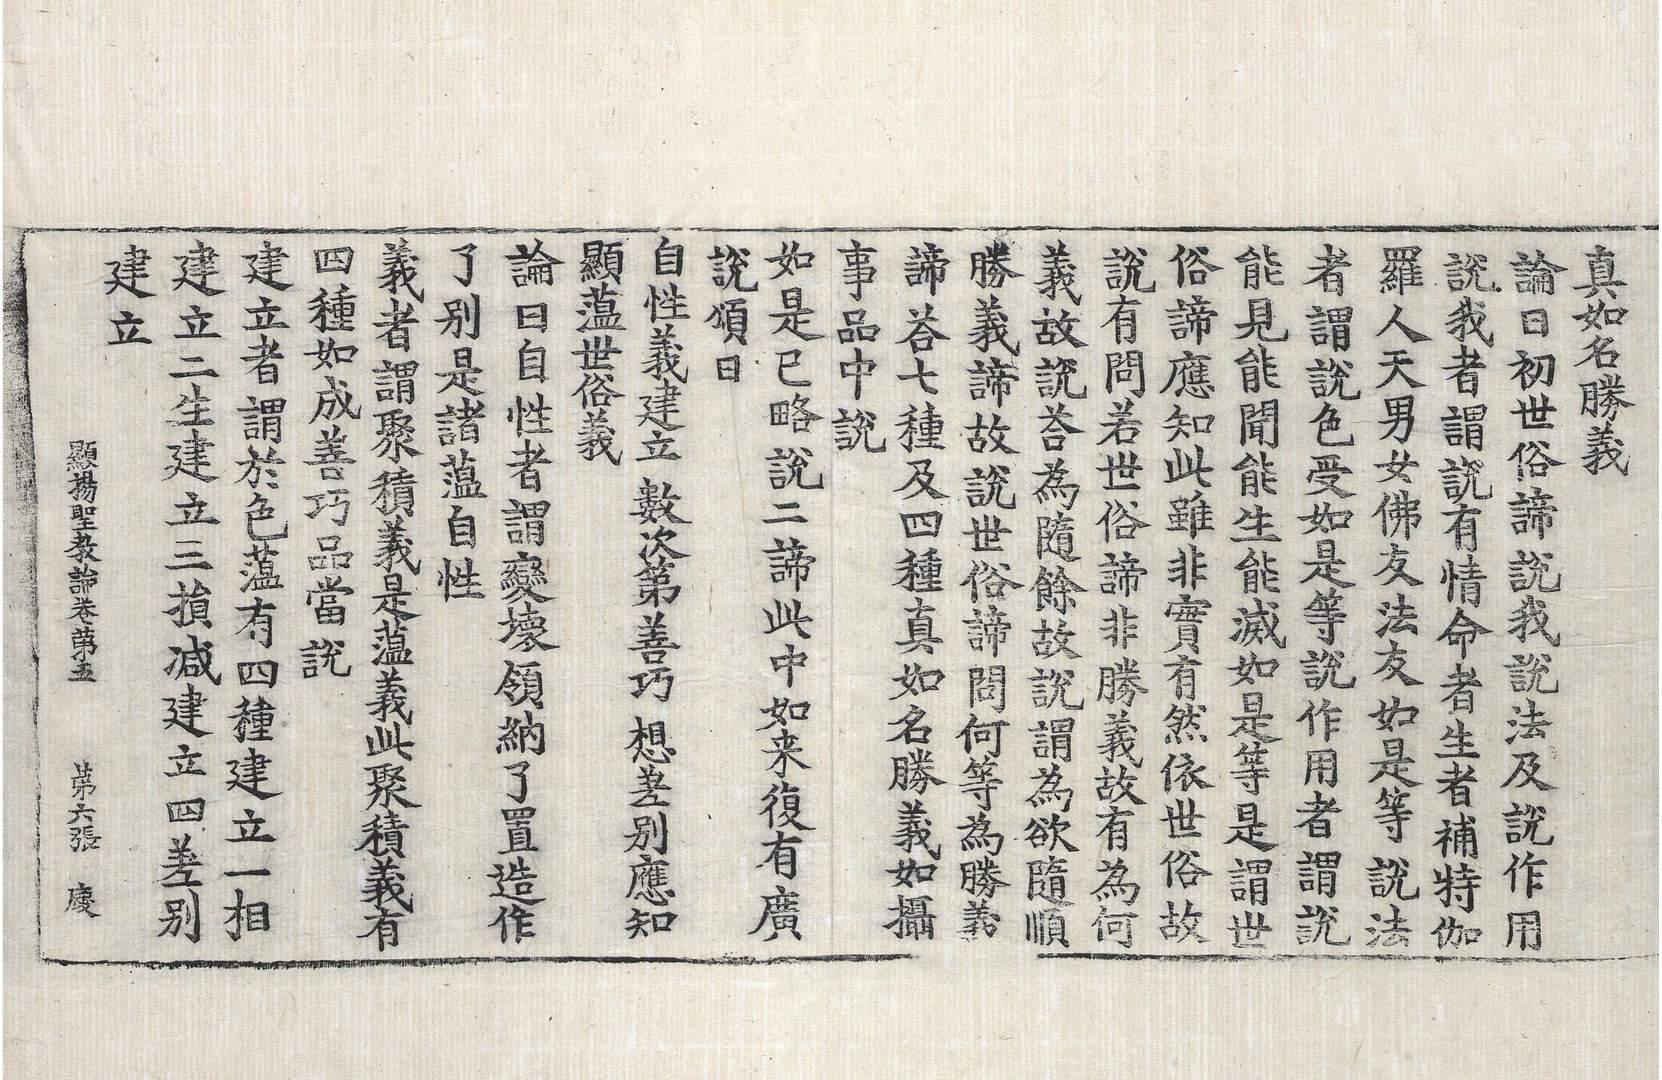 真如名勝義
論曰初世俗諦說我說法及說作用
說我者謂說有情命者生者補特伽
羅人天男女佛友法友如是等說法
者謂說色受如是等說作用者謂說
能見能聞能生能滅如是等是謂世
俗諦應知此雖非實有然依世俗故
說有問若世俗諦非勝義故有為何
義故說荅為隨餘故說謂為欲隨順
勝義諦故說世俗諦問何等為勝義
諦荅七種及四種真如名勝義如攝
事品中說
如是已略說二諦此中如来復有廣
說頌曰
自性義建立 數次第善巧 想差別應知
顯蕰世俗義
論曰自性者謂變壞領納了置造作
了別是諸蕰自性
義者謂聚積義是蕰義此聚積義有
四種如成善巧品當說
建立者謂於色蕰有四種建立一相
建立二生建立三損减建立四差別
建立
顯揚聖教論卷苐五 苐六張 慶